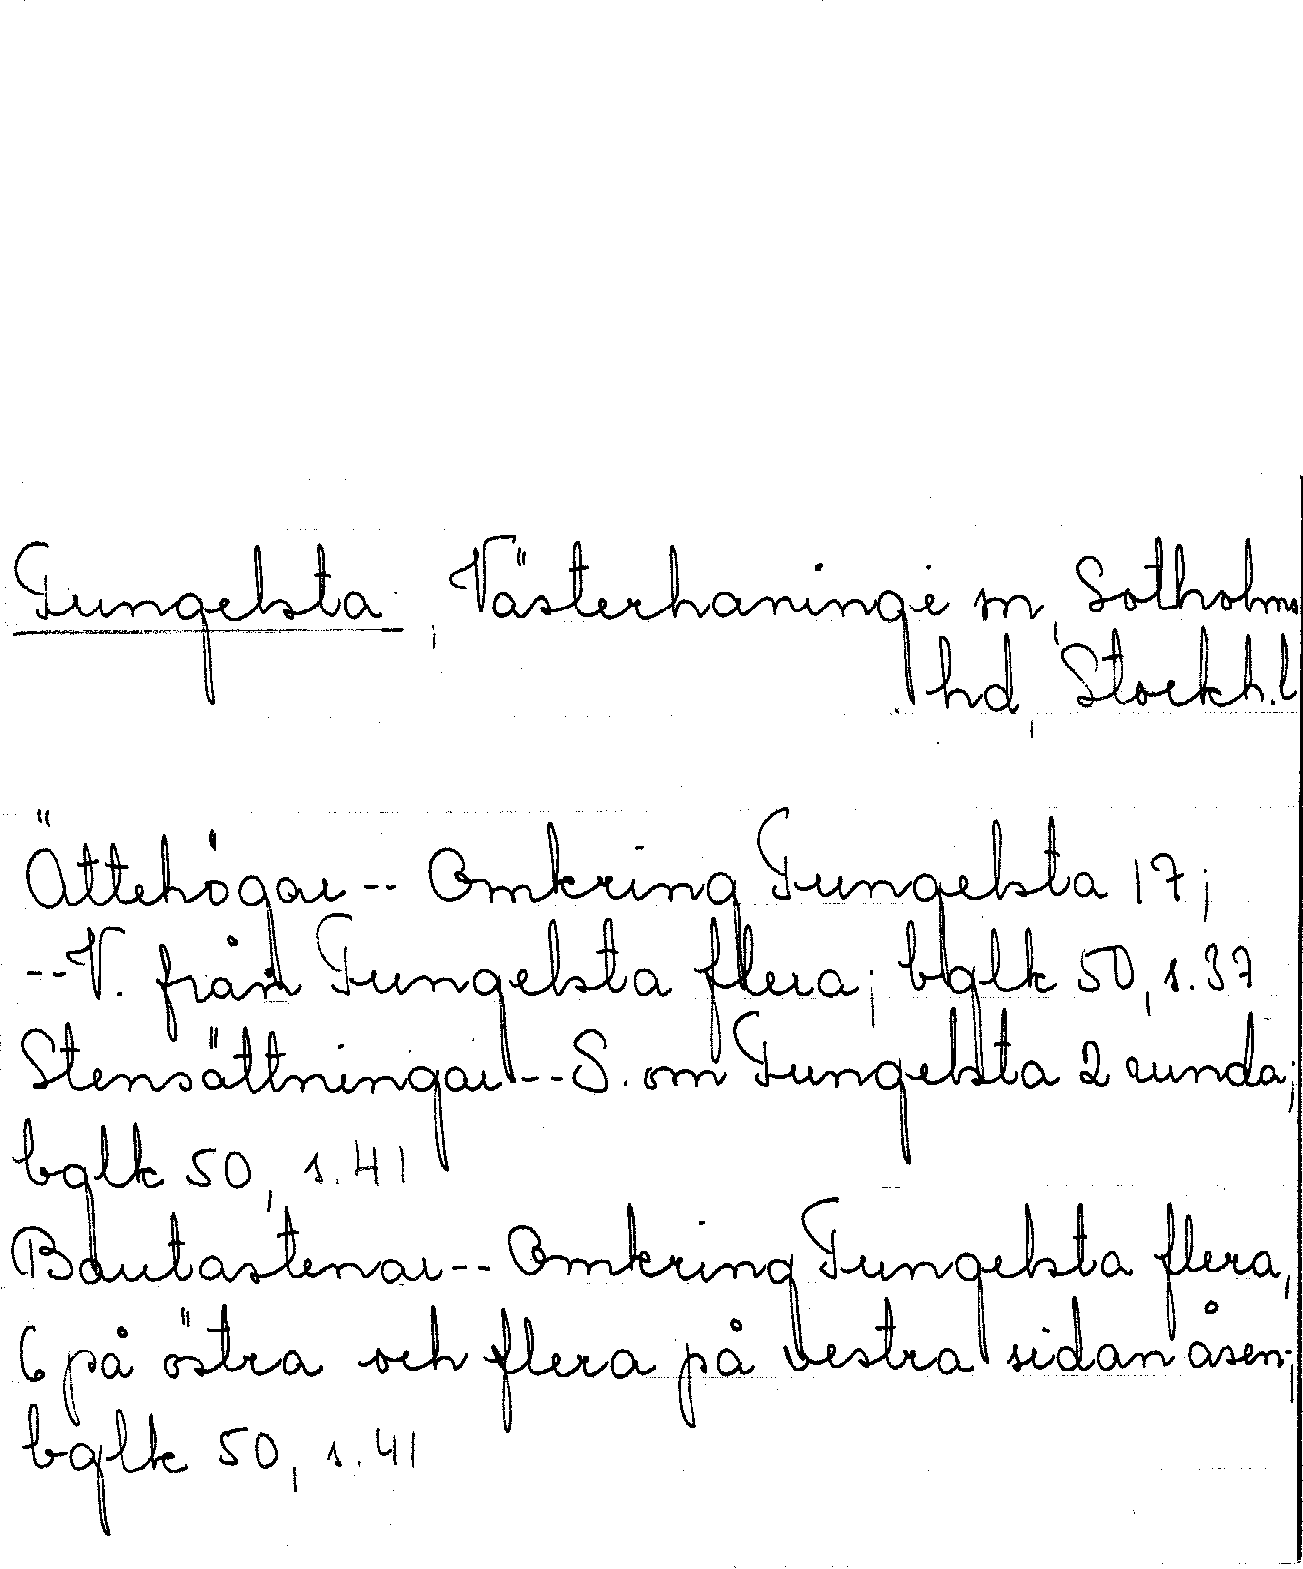 Tungelsta, Västerhaninge sn, Sotholms
hd, Stockh.l
Ättehögar -- Omkring Tungelsta 17;
-- V. från Tungelsta flera; bglk 50, s.37
Stensättningar -- S. om Tungelsta 2 runda;
bglk 50, s.41
Bautastenar -- Omkring Tungelsta flera,
6 på östra och flera på vestra sidan åsen;
bglk 50, s.41